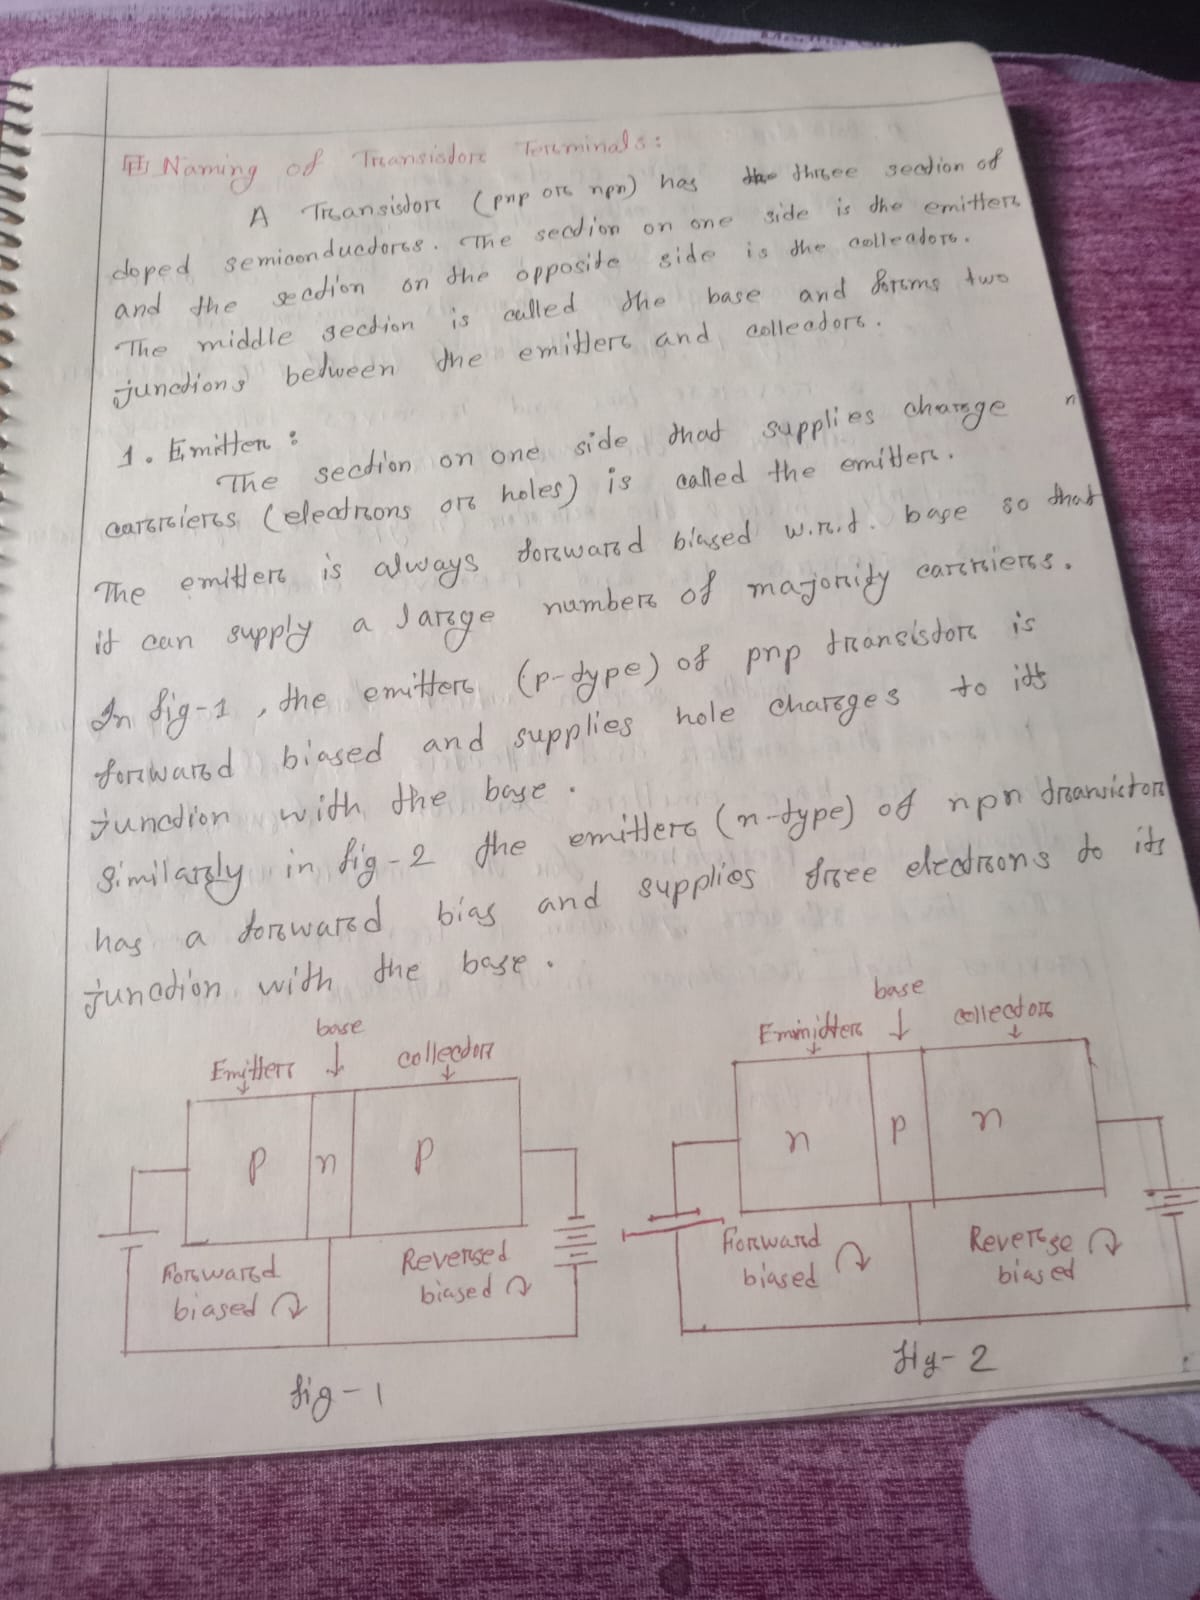 Naming of Transistor Terminals:
A Transistor (pnp or npn) has three section of
doped semiconductors. The section on one side is the emitter
and the section on the opposite side is the collector.
The middle section is called the base and forms two
junctions between the emitter and collector.
1. Emitter:
The section on one side that supplies charge
carriers (electrons or holes) is called the emitter.
The emitter is always forward biased w.r.t. base so that
it can supply a large number of majority carriers.
In fig-1, the emitter (p-type) of pnp transistor is
forward biased and supplies hole charges to its
junction with the base.
Similarly in fig-2 the emitter (n-type) of npn transistor
has a forward bias and supplies free electrons to its
junction with the base.
base
Emitter ↓ collector
p n p
Forward biased
Reversed biased
fig-1
base
Emimitter ↓ collector
n p n
Forward biased
Reverse biased
fig-2